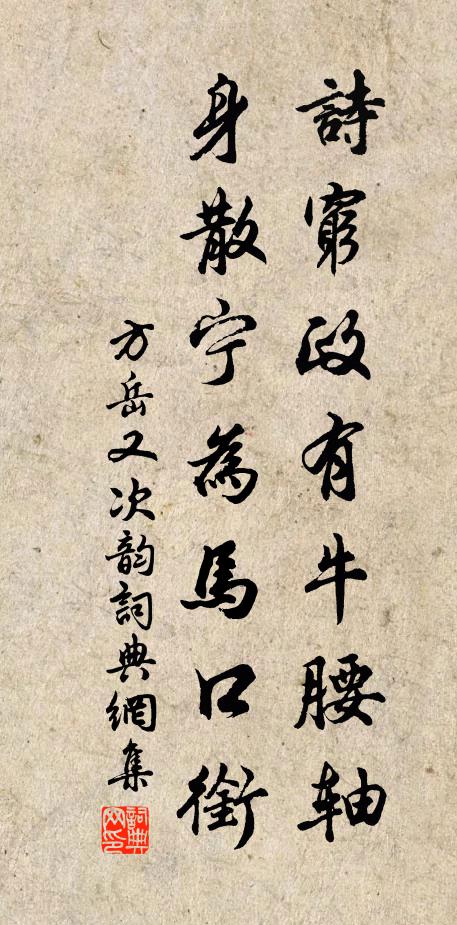 詩窮政有牛腰軸
身散宁為馬口銜
方岳又次韵詞典網集
詞典网印